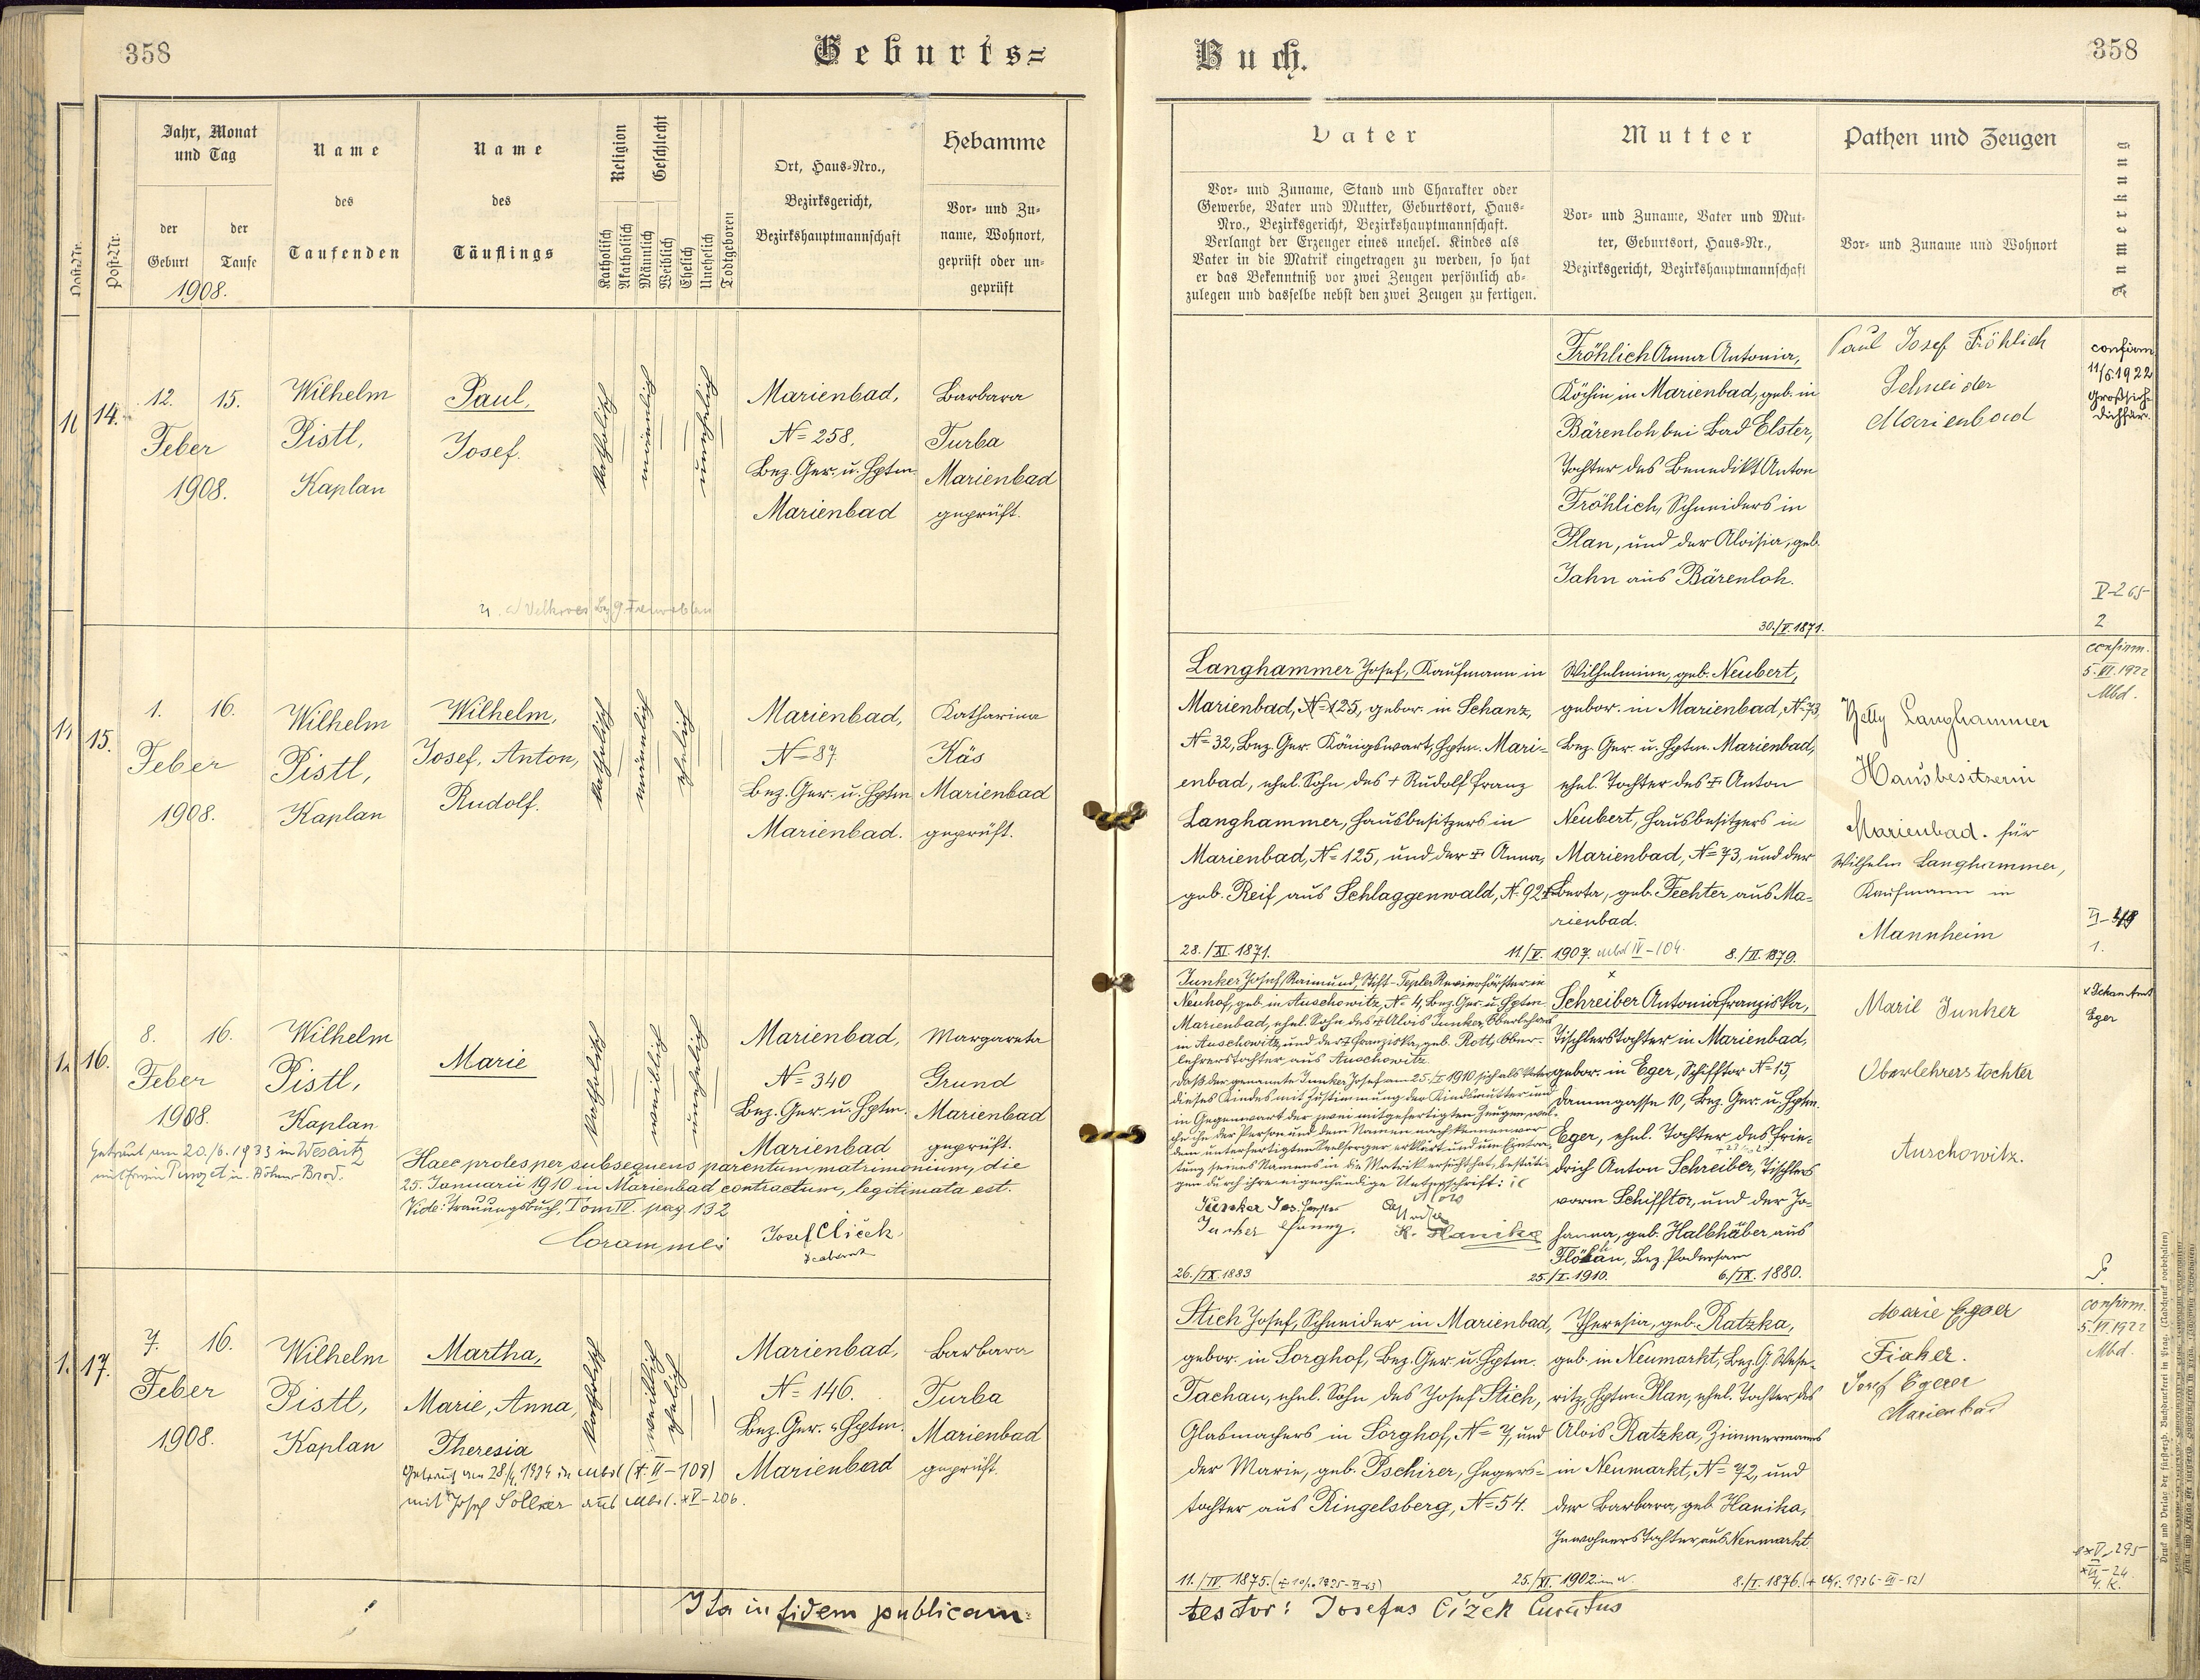 358
Geburts=
Jahr, Monat
und Tag
der
Geburt
der
Taufe
1908.
Post-Nr.
Name
des
Taufenden
Name
des
Täuflings
Religion
Katholisch
Akatholisch
Geschlecht
Männlich
Weiblich
Ehelich
Unehelich
Todtgeboren
Ort, Haus-Nro.,
Bezirksgericht,
Bezirkshauptmannschaft
Hebamme
Vor- und Zu-
name, Wohnort,
geprüft oder un-
geprüft
14.
12. 15.
Feber
1908.
Wilhelm
Pistl,
Kaplan
Paul,
Josef.
katholisch
männlich
unehelich
Marienbad,
N= 258,
Bez. Ger. u. Hptm.
Marienbad
Barbara
Turba
Marienbad
geprüft.
15.
1. 16.
Feber
1908.
Wilhelm
Pistl,
Kaplan
Wilhelm,
Josef, Anton,
Rudolf.
katholisch
männlich
ehelich
Marienbad,
N= 87
Bez. Ger. u. Hptm.
Marienbad.
Katharina
Käs
Marienbad
geprüft.
16.
8. 16.
Feber
1908.
Wilhelm
Pistl,
Kaplan
Marie
katholisch
weiblich
unehelich
Marienbad,
N= 340
Bez. Ger. u. Hptm.
Marienbad
Margareta
Grund
Marienbad
geprüft.
Getraut am 20./6. 1933 in Weseritz
Haec proles per subsequens parentum matrimonium, die
25. Januarii 1910 in Marienbad contractum, legitimata est.
Vide: Trauungsbuch, Tom IV. pag 132
Coram me: Josef Čížek,
17.
7. 16.
Feber
1908.
Wilhelm
Pistl,
Kaplan
Martha,
Marie, Anna,
Theresia
katholisch
weiblich
ehelich
Marienbad,
N= 146.
Bez. Ger. u. Hptm.
Marienbad
Barbara
Turba
Marienbad
geprüft.
mit Josef Söllner aus
Ita in fidem publicam:
Buch.
358
Vater
Vor- und Zuname, Stand und Charakter oder
Gewerbe, Vater und Mutter, Geburtsort, Haus-
Nro., Bezirksgericht, Bezirkshauptmannschaft.
Verlangt der Erzeuger eines unehel. Kindes als
Vater in die Matrik eingetragen zu werden, so hat
er das Bekenntniß vor zwei Zeugen persönlich ab-
zulegen und dasselbe nebst den zwei Zeugen zu fertigen.
Mutter
Vor- und Zuname, Vater und Mut-
ter, Geburtsort, Haus-Nr.,
Bezirksgericht, Bezirkshauptmannschaft
Pathen und Zeugen
Vor- und Zuname und Wohnort
Anmerkung
Fröhlich Anna Antonia,
Köchin in Marienbad, geb. in
Bärenloh bei Bad Elster,
Tochter des Benedikt Anton
Fröhlich, Schneiders in
Plan, und der Aloisia, geb.
Jahn aus Bärenloh.
30./V. 1871.
Paul Josef Fröhlich
Schneider
Marienbad
confirm
11/6. 1922
V-265
2
Langhammer Josef, Kaufmann in
Marienbad, N= 125, gebor. in Schanz,
N= 32, Bez. Ger. Königswart, Hptm. Mari-
enbad, ehel. Sohn des + Rudolf Franz
Langhammer, Hausbesitzers in
Marienbad, N= 125, und der + Anna,
geb. Reif aus Schlaggenwald, N. 92
28./XI. 1871.
11/V. 1907.
Wilhelmine, geb. Neubert,
gebor. in Marienbad, N=73,
Bez. Ger. u. Hptm. Marienbad,
ehel. Tochter des + Anton
Neubert, Hausbesitzers in
Marienbad, N= 73, und der
Berta, geb. Fechter aus Ma-
rienbad.
8./II. 1879.
Betty Langhammer
Hausbesitzerin
Marienbad. für
Wilhelm Langhammer,
Kaufmann in
Mannheim
confirm.
5. VI. 1922
Mbd.
1.
Junker Josef, Raimund, Stift-Tepler Revierförster in
Neuhof, geb. in Auschowitz, N= 4, Bez. Ger. u. Hptm.
Marienbad, ehel. Sohn des + Alois Junker, Oberlehrers
in Auschowitz, und der + Franziska, geb. Rott, Ober-
lehrerstochter aus Auschowitz.
daß der genannte Junker Josef am 25./I. 1910 sich als Vater
dieses Kindes mit Zustimmung der Kindsmutter und
in Gegenwart der zwei mitgefertigten Zeugen, wel-
che ihn der Person und dem Namen nach kennen vor
dem unterfertigten Seelsorger erklärt und um Eintra-
gung seines Namens in die Matrik ersucht hat, bestäti-
gen durch ihre eigenhändige Unterschrift:
K. Hanika
26./IX. 1883
25./I. 1910.
Schreiber Antonia Franziska,
Tischlerstochter in Marienbad,
gebor. in Eger, Schifftor N= 15,
Dammgasse 10, Bez. Ger. u. Hptm.
Eger, ehel. Tochter des Frie-
drich Anton Schreiber, Tischlers
vorm Schifftor, und der Jo-
hanna, geb. Halbhäber aus
Flöhau, Bez. Podersam
6./IX. 1880.
Marie Junker
Oberlehrerstochter
Auschowitz.
Eger
Stich Josef, Schneider in Marienbad,
gebor. in Sorghof, Bez. Ger. u. Hptm.
Tachau, ehel. Sohn des Josef Stich,
Glasmachers in Sorghof, N= 7, und
der Marie, geb. Pschirer, Hegers-
tochter aus Ringelsberg, N= 54.
11./IV. 1875.
25./XI. 1902
Theresia, geb. Ratzka,
geb. in Neumarkt, Bez. G. Wese-
ritz, Hptm. Plan, ehel. Tochter des
Alois Ratzka, Zimmermanns
in Neumarkt, N= 72, und
der Barbara, geb. Hanika,
Inwohnerstochter aus Neumarkt
8./I. 1876.
Marie Egger
Fiaker.
Marienbad
confirm.
5. VI. 1922
Mbd.
testor: Josefus Čížek Curatus